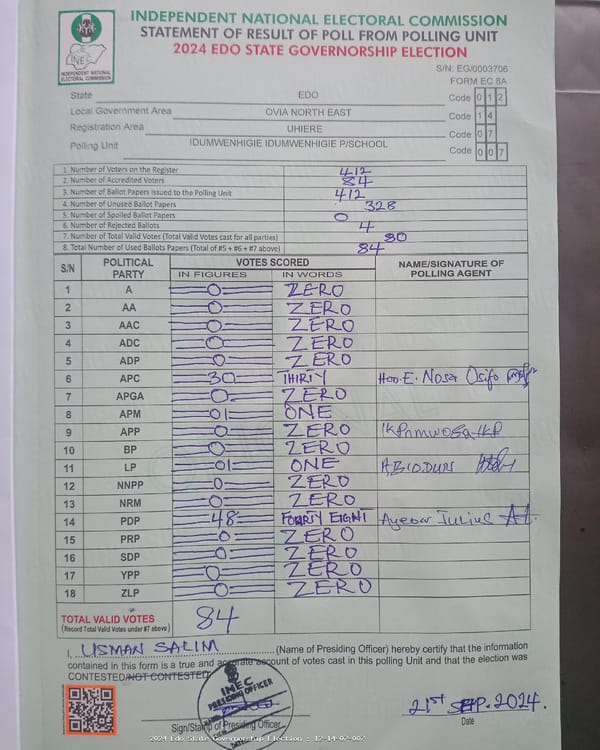 INDEPENDENT NATIONAL ELECTORAL COMMISSION
STATEMENT OF RESULT OF POLL FROM POLLING UNIT
2024 EDO STATE GOVERNORSHIP ELECTION
INEC
INDEPENDENT NATIONAL
ELECTORAL COMMISSION
S/N: EG/0003706
FORM EC 8A
State EDO Code 0 1 2
Local Government Area OVIA NORTH EAST Code 1 4
Registration Area UHIERE Code 0 7
Polling Unit IDUMWENHIGIE IDUMWENHIGIE P/SCHOOL Code 0 0 7
1. Number of Voters on the Register 412
2. Number of Accredited Voters 84
3. Number of Ballot Papers Issued to the Polling Unit 412
4. Number of Unused Ballot Papers 328
5. Number of Spoiled Ballot Papers 0
6. Number of Rejected Ballots 4
7. Number of Total Valid Votes (Total Valid Votes cast for all parties) 80
8. Total Number of Used Ballots Papers (Total of #5 + #6 + #7 above) 84
S/N POLITICAL PARTY VOTES SCORED NAME/SIGNATURE OF POLLING AGENT
IN FIGURES IN WORDS
1 A 0 ZERO
2 AA 0 ZERO
3 AAC 0 ZERO
4 ADC 0 ZERO
5 ADP 0 ZERO
6 APC 30 THIRTY Hon. E. Nosa Osifo
7 APGA 0 ZERO
8 APM 01 ONE
9 APP 0 ZERO
10 BP 0 ZERO
11 LP 01 ONE ABIODUN
12 NNPP 0 ZERO
13 NRM 0 ZERO
14 PDP 48 FOURTY EIGHT Ayebor Julius
15 PRP 0 ZERO
16 SDP 0 ZERO
17 YPP 0 ZERO
18 ZLP 0 ZERO
TOTAL VALID VOTES 84
(Record Total Valid Votes under #7 above)
I, USMAN SALIM (Name of Presiding Officer) hereby certify that the information
contained in this form is a true and accurate account of votes cast in this polling Unit and that the election was
CONTESTED/NOT CONTESTED
INEC
PRESIDING OFFICER
21ST SEP. 2024.
Sign/Stamp of Presiding Officer Date
2024 Edo State Governorship Election : 12-14-07-007